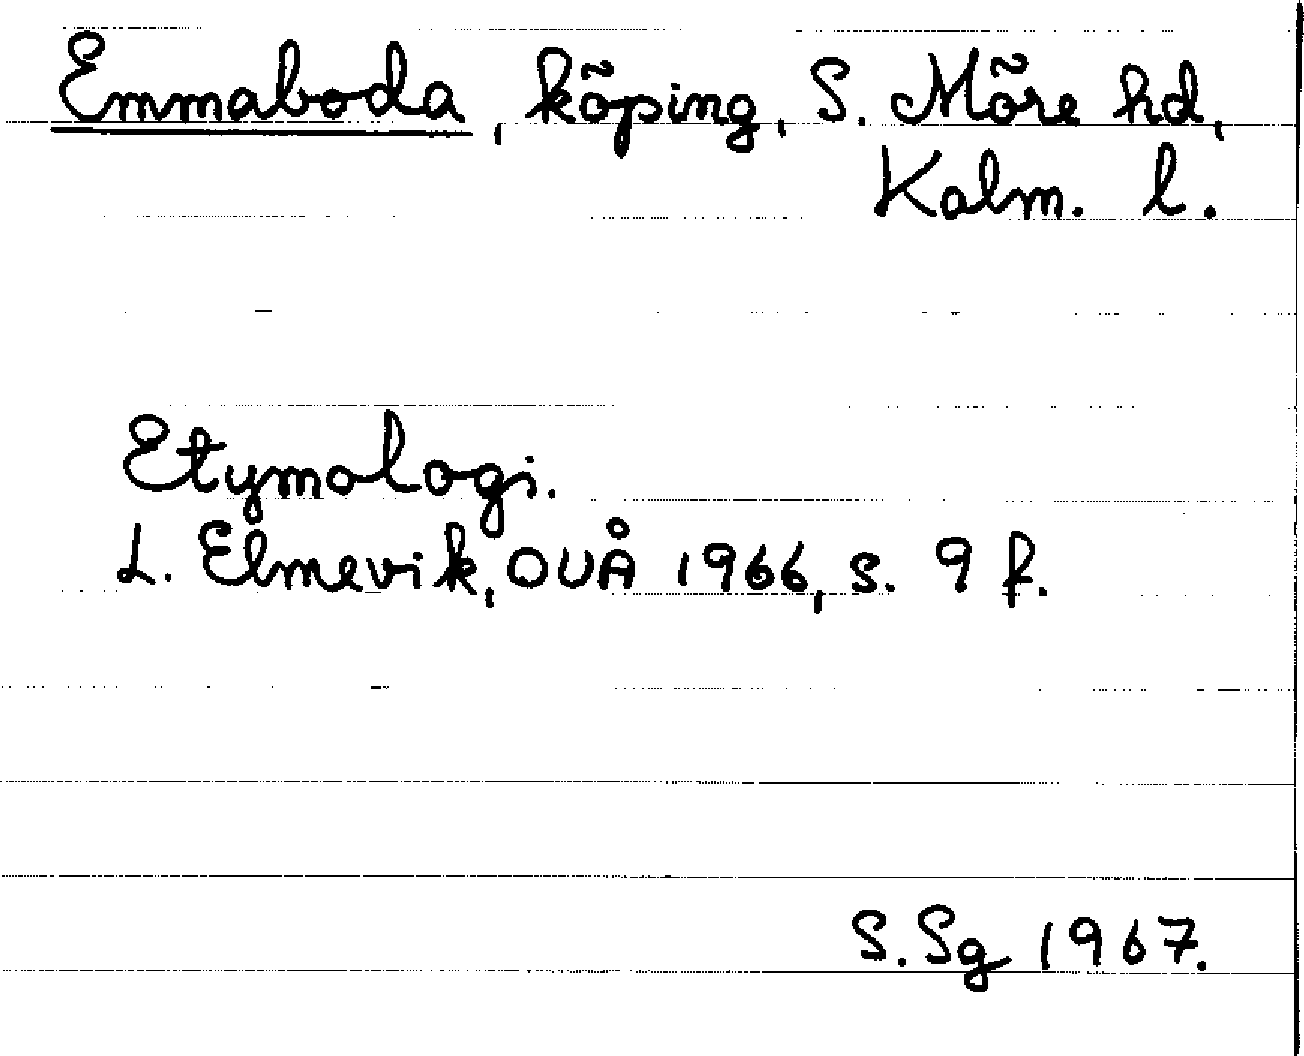 Emmaboda, köping, S. Möre hd,
Kalm. l.
Etymologi.
L. Elmevik, OUÅ 1966, s. 9 f.
S. Sg 1967.